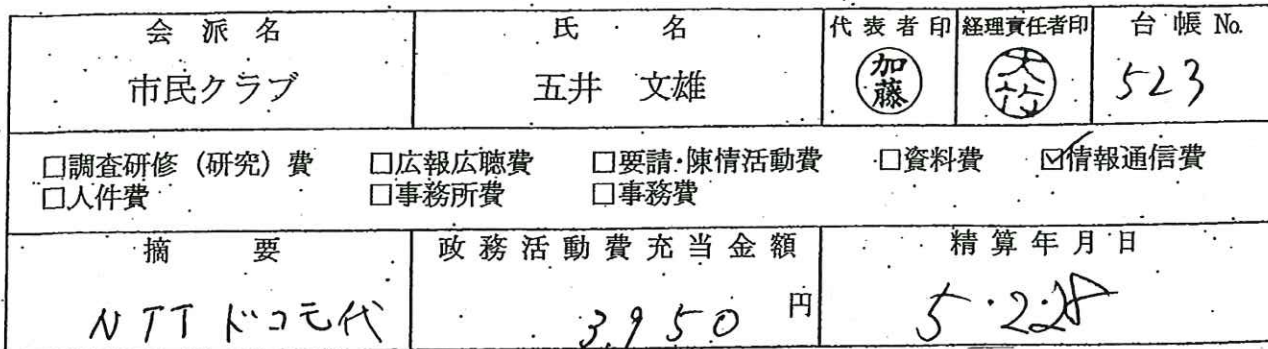 会派名 氏名 代表者印 経理責任者印 台帳No.
市民クラブ 五井 文雄 加藤 大竹 523
□調査研修(研究)費 □広報広聴費 □要請・陳情活動費 □資料費 ☑情報通信費
□人件費 □事務所費 □事務費
摘要 政務活動費充当金額 精算年月日
NTTドコモ代 3,950円 5.2.28